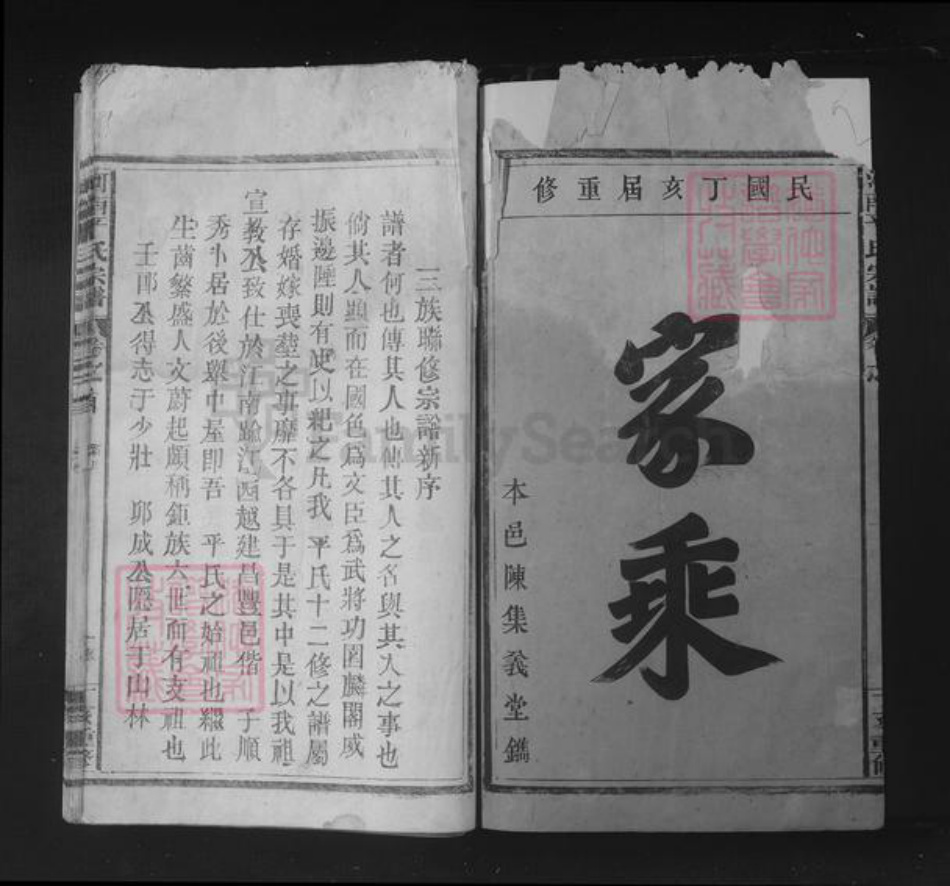 民國丁亥屆重修
家乘
本邑陳集義堂鐫
三族聯修宗譜新序
譜者何也傳其人也傳其人之名與其人之事也
倘其人顯而在國色為文臣為武將功圖麟閣威
振邊陲則有史以紀之凡我 平氏十二修之譜屬
存婚嫁喪塟之事靡不各具于是其中是以我祖
宣教公致仕於江南踰江西越建昌豐邑偕 子順
秀卜居於後舉中屋即吾 平氏之始祖也繼此
生齒繁盛人文蔚起頗稱鉅族六世而有支祖也
壬郎公得志于少壯 郭成公隱居于山林
河南平氏宗譜
卷之首
FamilySearch